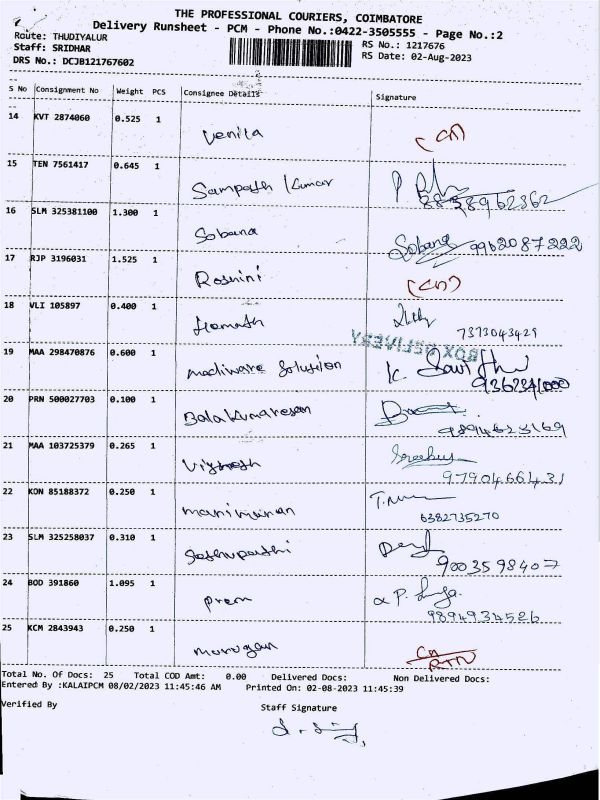 THE PROFESSIONAL COURIERS, COIMBATORE
Delivery Runsheet - PCM - Phone No.:0422-3505555 - Page No.:2
Route: THUDIYALUR
Staff: SRIDHAR
DRS No.: DCJB121767602
RS No.: 1217676
RS Date: 02-Aug-2023
S No Consignment No Weight PCS Consignee Details Signature
14 KVT 2874060 0.525 1 Venila
15 TEN 7561417 0.645 1 Sampath Kumar
8838962362
16 SLM 325381100 1.300 1 Sobana Sobana 9962087222
17 RJP 3196031 1.525 1 Rosnini
18 VLI 105897 0.400 1 Hemath
7373043429
BOX DELIVERY
19 MAA 298470876 0.600 1 mediware Solution
20 PRN 500027703 0.100 1 Bala Kumaresan
9894623169
21 MAA 103725379 0.265 1 Vignesh
9790466431
22 KON 85188372 0.250 1 manimaran
6382735270
23 SLM 325258037 0.310 1 Sethupathi
9003598407
24 BOD 391860 1.095 1 prem
9894934526
25 KCM 2843943 0.250 1 murugan CN
RTN
Total No. Of Docs: 25 Total COD Amt: 0.00 Delivered Docs: Non Delivered Docs:
Entered By :KALAIPCM 08/02/2023 11:45:46 AM Printed On: 02-08-2023 11:45:39
Verified By Staff Signature